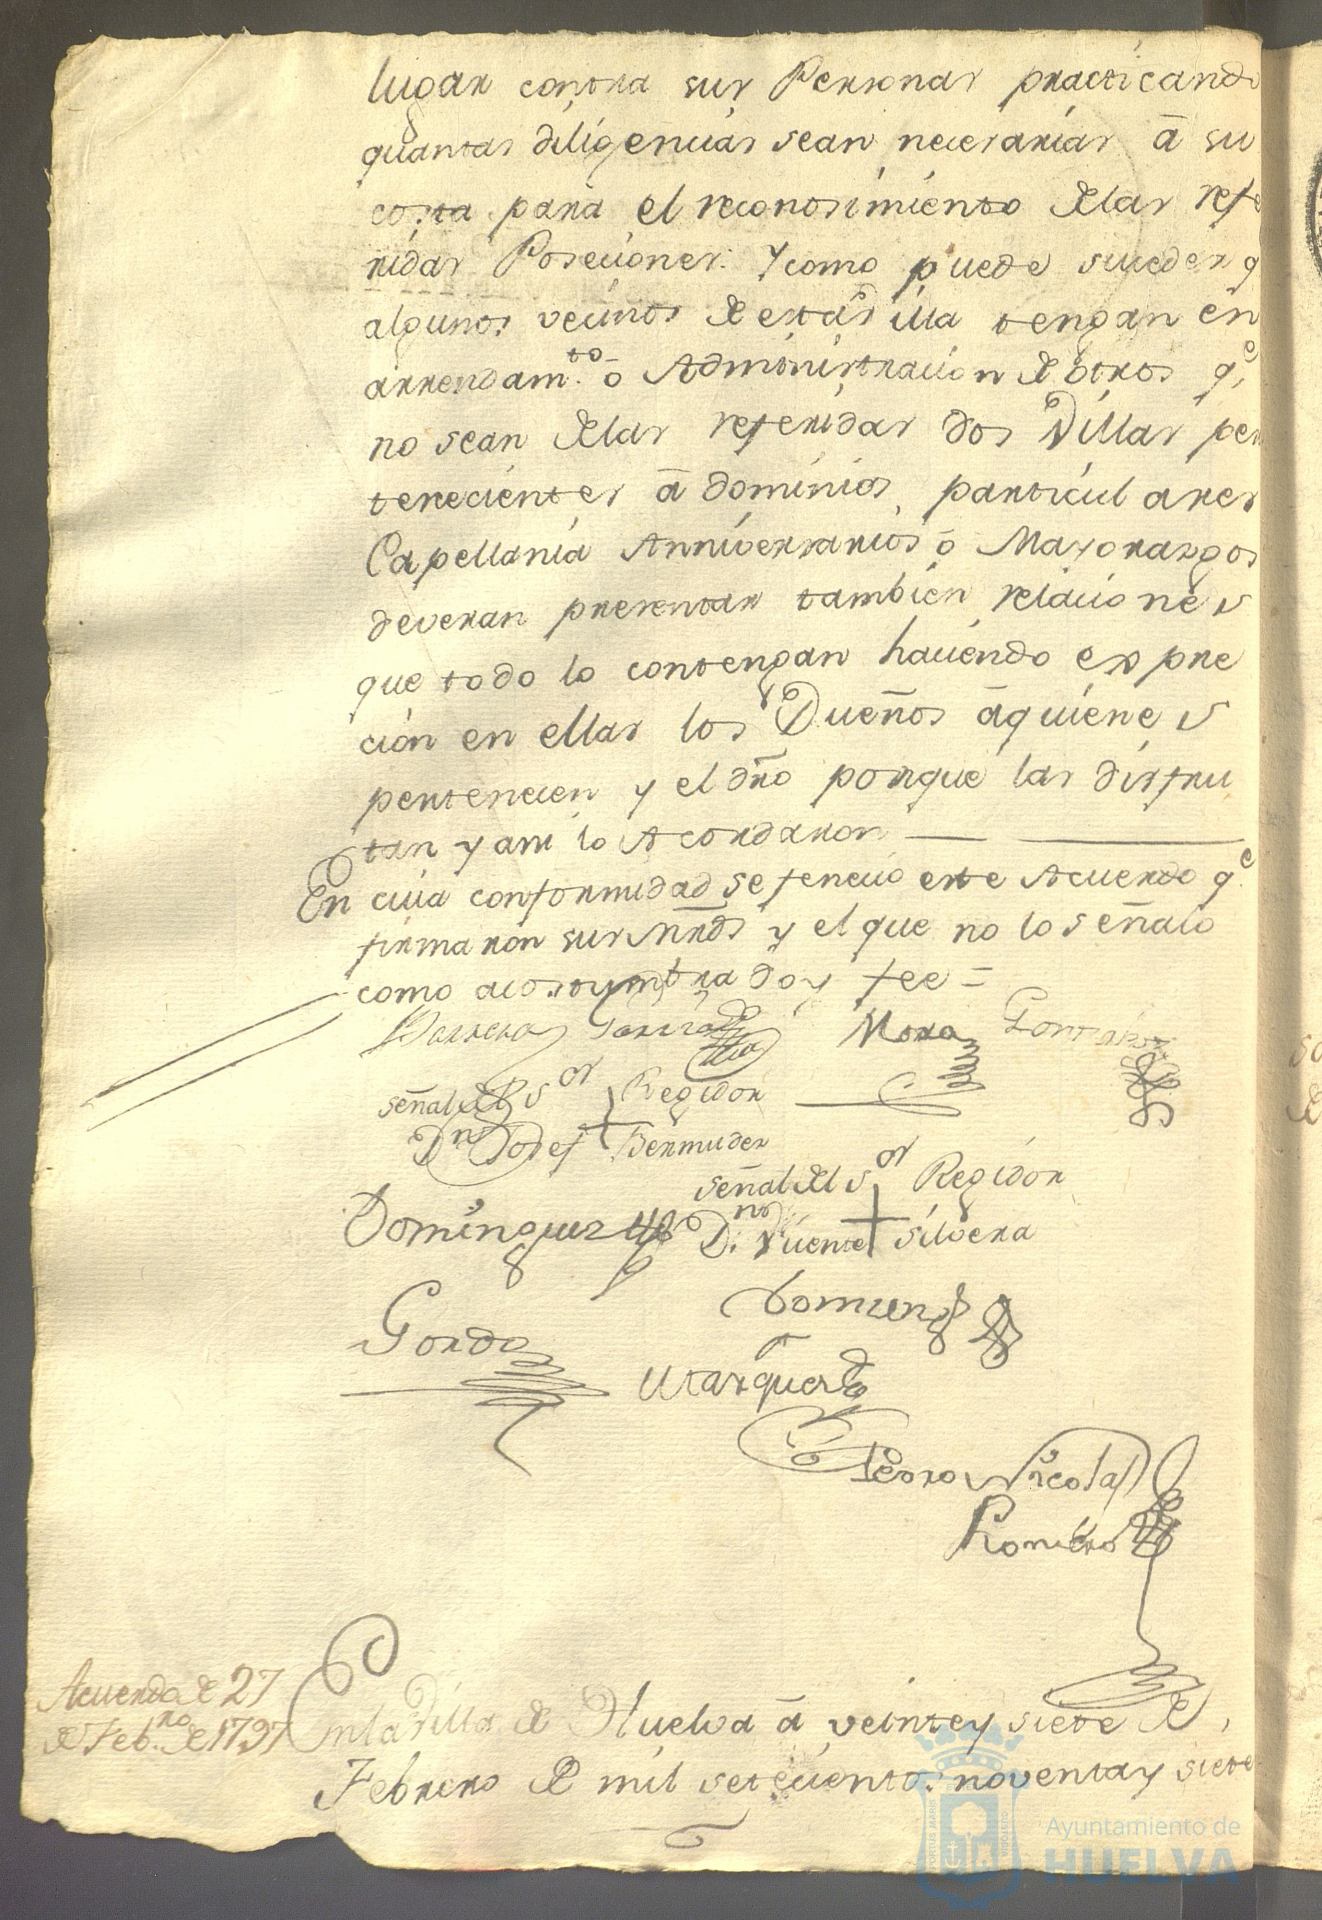 lugar contra sus Personas practicando
quantas diligencias sean necesarias â su
costa para el reconosimiento delas refe
ridas Poseciones. Y como puede suceder q
algunos vecinos de estas illa tengan en
arrendam.to ô Administracion de otros q.e
no sean delas referidas dos Villas per
tenecientes â dominios particulares
Capellania Anniversarios ô Mayorazgos
deveran presentar tambien relaciones
que todo lo contengan haciendo expre
cion en ellas los Dueños âquienes
pertenecen y el dr̃o porque las disfru
tan y asi lo Acordaron
En cuia conformidad se fenecio este Acuerdo q.e
firmaron sus mr̃ds y el que no lo señalo
como acostumbra doy fee =
Barrera Garcia Mora Gonzales
señal del S.or Regidor
Dn Josef + Bermudez
señal del S.or Regidor
Dn. Vicente + Silvera
Dominguez
Gordo
Marquez
Pedro Nicolas
Romero
Acuerdo de 27
de Feb.ro de 1797
En la Villa de Huelva â veinte y siete de
Febrero de mil setecientos noventa y siete
PORTUS MARIS
Ayuntamiento de
HUELVA